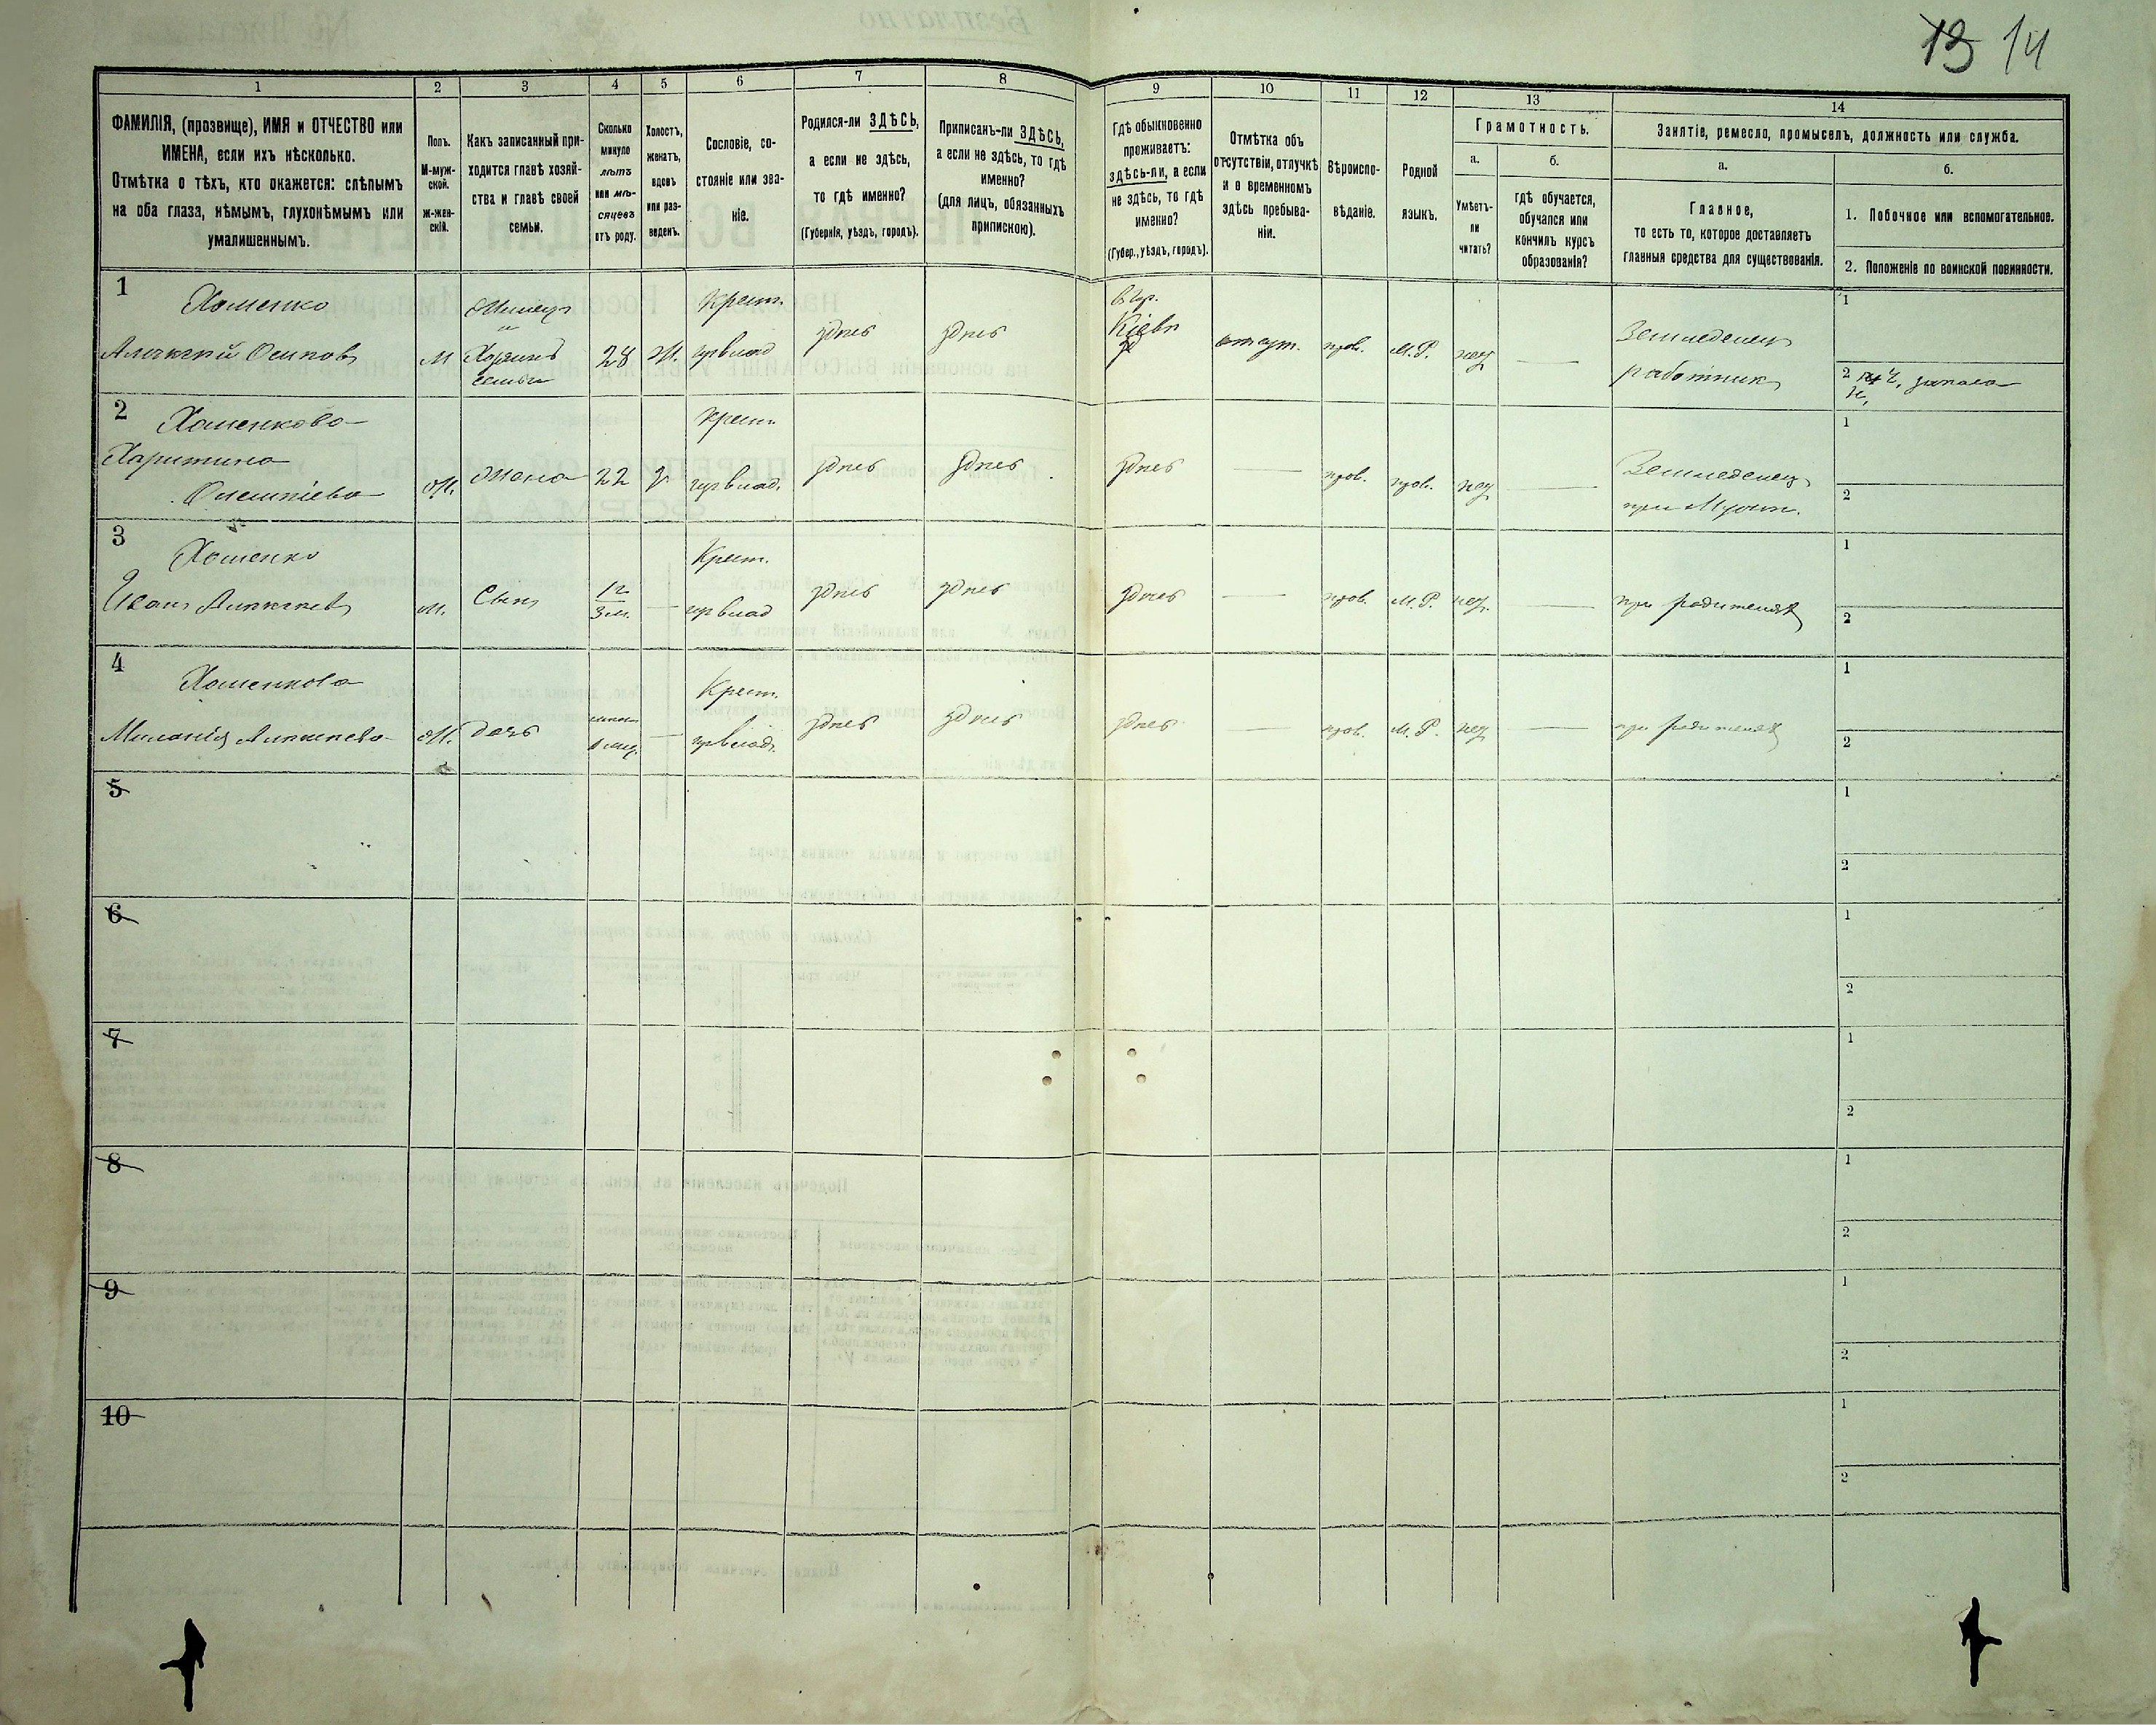 13 14
1
2
3
4
5
6
7
8
9
10
11
12
13
14
ФАМИЛІЯ, (прозвище), ИМЯ и ОТЧЕСТВО или
ИМЕНА, если ихъ нѣсколько.
Отмѣтка о тѣхъ, кто окажется: слѣпымъ
на оба глаза, нѣмымъ, глухонѣмымъ или
умалишеннымъ.
Полъ.
М-муж-
ской.
Ж-жен-
скій.
Какъ записанный при-
ходится главѣ хозяй-
ства и главѣ своей
семьи.
Сколько
минуло
лѣтъ
или мѣ-
сяцевъ
отъ роду.
Холостъ,
женатъ,
вдовъ
или раз-
веденъ.
Сословіе, со-
стояніе или зва-
ніе.
Родился-ли ЗДѢСЬ,
а если не здѣсь,
то гдѣ именно?
(Губернія, уѣздъ, городъ).
Приписанъ-ли ЗДѢСЬ,
а если не здѣсь, то гдѣ
именно?
(для лицъ, обязанныхъ
припискою).
Гдѣ обыкновенно
проживаетъ:
здѣсь-ли, а если
не здѣсь, то гдѣ
именно?
(Губер., уѣздъ, городъ).
Отмѣтка объ
отсутствіи, отлучкѣ
и о временномъ
здѣсь пребыва-
ніи.
Вѣроиспо-
вѣданіе.
Родной
языкъ.
Грамотность.
а.
Умѣетъ-
ли
читать?
б.
гдѣ обучается,
обучался или
кончилъ курсъ
образованія?
Занятіе, ремесло, промыселъ, должность или служба.
а.
Главное,
то есть то, которое доставляетъ
главныя средства для существованія.
б.
1. Побочное или вспомогательное.
2. Положеніе по воинской повинности.
1
Хоменко
Алексѣй Осиповъ
м
Хозяинъ
семьи
28
ж.
Крест.
здѣсь
здѣсь
Кіевѣ
отсут.
прав.
М.Р.
нет
Земледелец
работник
1
2
2
Хоменкова
Харитина
ж.
жена
22
Крест.
здѣсь
здѣсь
здѣсь
прав.
нет
Земледелец
при Муж.
1
2
3
Хоменко
Иван Алексеев
м.
Сынъ
3 м.
Крест.
здѣсь
здѣсь
здѣсь
прав.
М.Р.
нет
при родителях
1
2
4
Хоменкова
Миланія Алексеева
ж.
дочь
Крест.
здѣсь
здѣсь
здѣсь
прав.
М.Р.
нет
при родителях
1
2
5
1
2
6
1
2
7
1
2
8
1
2
9
1
2
10
1
2